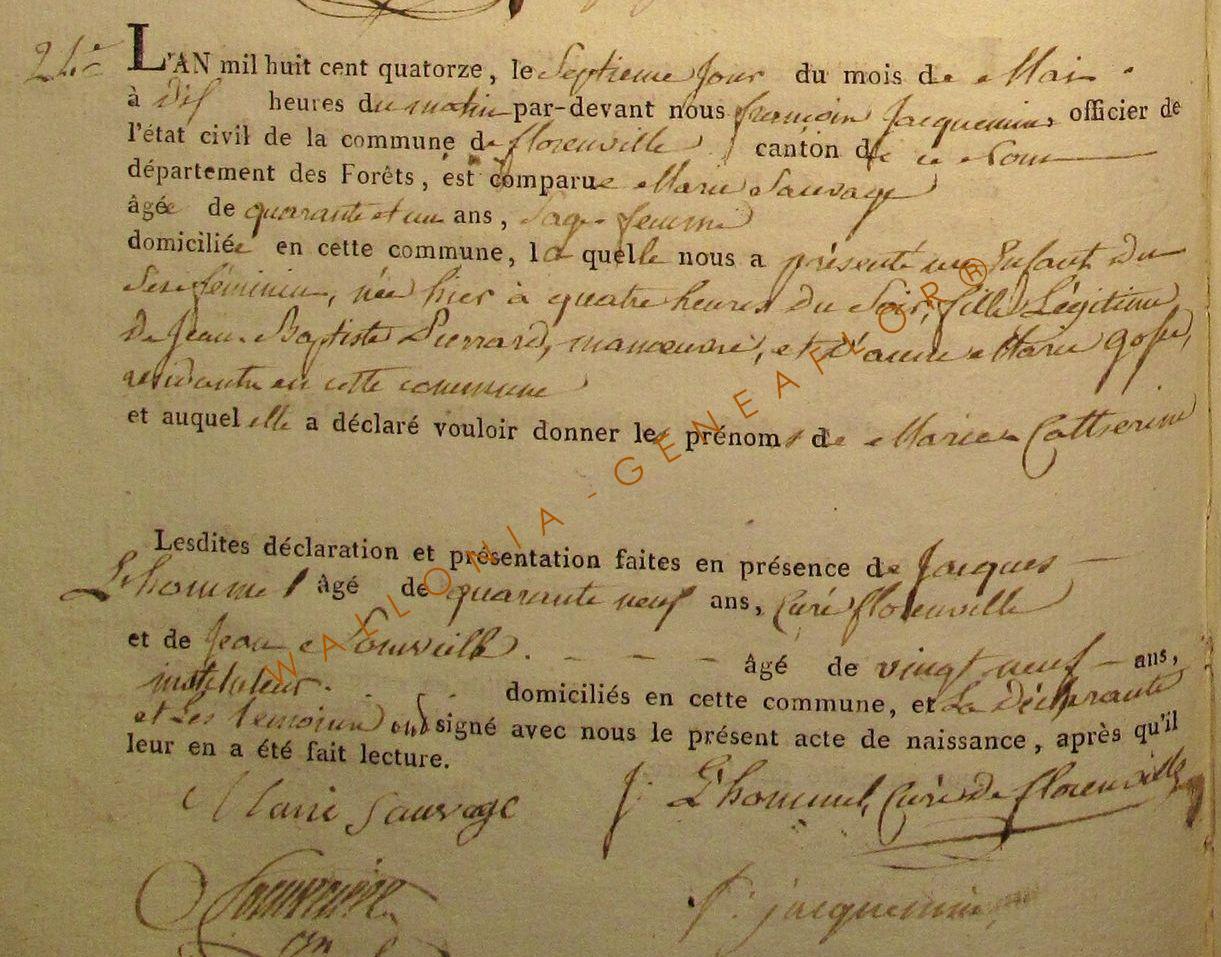 21.e
L'AN mil huit cent quatorze, le Septieme Jour du mois de Mai.
à dix heures du matin par-devant nous françois Jacquemin officier de
l'état civil de la commune de florenville canton de ce Nom
département des Forêts, est comparue Marie Sauvage
âgée de quarante et un ans, sage femme
domiciliée en cette commune, la quelle nous a présenté un Enfant Du
Sexe féminin, née hier à quatre heures Du Soir, fille Légitime
De Jean-Baptiste Pierrard, manoeuvre, et d'anne Marie
residante en cette commune
et auquel elle a déclaré vouloir donner les prénoms de Marie Catherine
Lesdites déclaration et présentation faites en présence de Jacques
L'homme l âgé de quarante neuf ans, Curé florenville
et de Jean âgé de vingt neuf ans,
instituteur. domiciliés en cette commune, et La Déclarante
et Les temoins ont signé avec nous le présent acte de naissance, après qu'il
leur en a été fait lecture.
Marie Sauvage J. L'hommel, Curé De florenville
f. jacquemin
WALLONIA-GENEAFLOR®